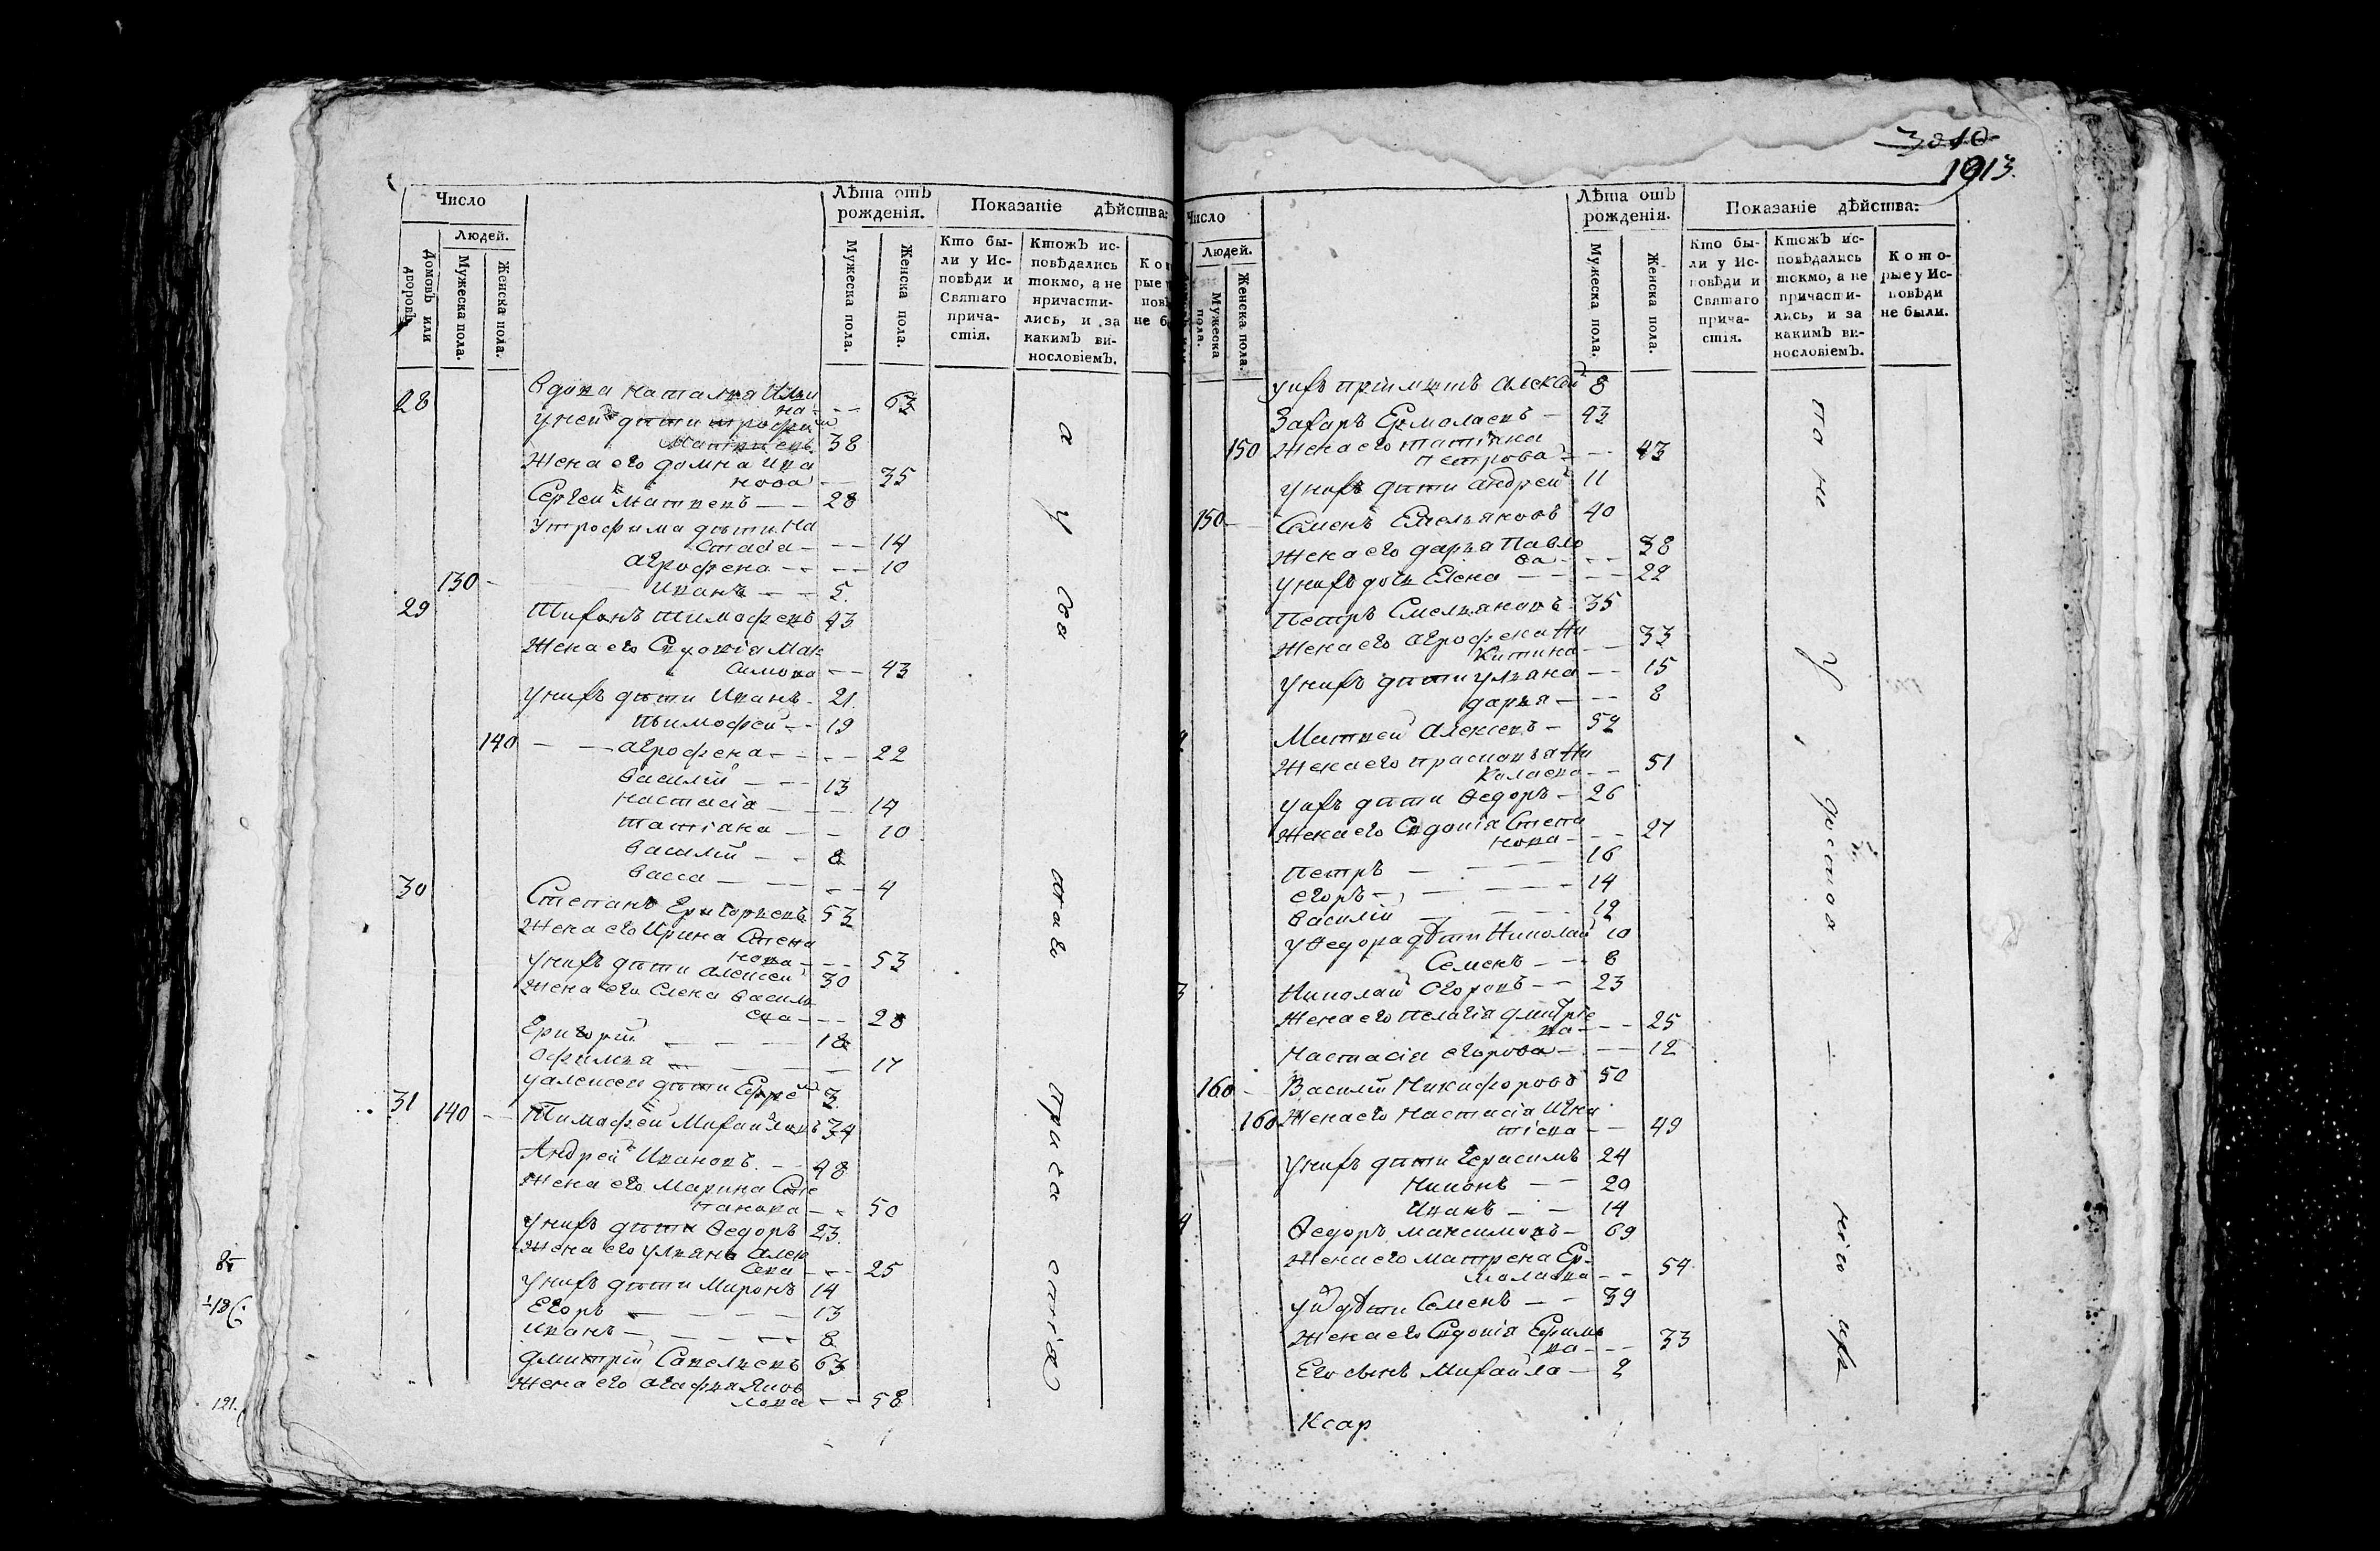 Число
Людей.
Домовъ или дворовъ.
Мужеска пола.
Женска пола.
Лѣта отъ рожденія.
Мужеска пола.
Женска пола.
Показаніе дѣйства:
Кто бы-
ли у Ис-
повѣди и
Святаго
прича-
стія.
Ктожъ ис-
повѣдались
токмо, а не
причасти-
лись, и за
какимъ ви-
нословіемъ.
28 вдова наталья
на - - - 63
у ней дѣти трофим
Матвѣевъ 38
Жена его домна Ива
нова - 35
Сергей Матвеевъ - - 28
У трофима дѣти на
стасia - - - 14
агрофена - - - 10
130 - Иванъ - - 5
29 Тихонъ тимофеевъ 43
Жена его Мак
симова - - 43
у нихъ дѣти Иванъ - 21
тимофей - - 19
140 - - агрофена - - - 22
василiй - - - 13
настасiа - - - 14
татiана - - 10
василiй - - 8
васса - - - 4
30 Степанъ Григорьевъ 53
Жена его Ирина Степа
нова - - - 53
у нихъ дѣти алексей 30
Жена его Елена василь
ева - - - 28
Григорiй - - - 18
Офимья - - - 17
у алексея дѣти 3
31 140 - Тимофей Михайловъ 34
Андрей Ивановъ - - 48
Жена его Марина Сте
панова - - 50
у нихъ дѣти Ѳедоръ 23
Жена его ульяна алек
сева - - - 25
у нихъ дѣти Миронъ 14
Егоръ - - - 13
Иванъ - - - 8
дмитрiй Савельевъ 63
Жена его агафья Яков
лева - - 58
а у сего прича стiя
121.
3010
1013.
Число
Людей.
Мужеска пола.
Женска пола.
Лѣта отъ рожденія.
Мужеска пола.
Женска пола.
Показаніе дѣйства:
Кто бы-
ли у Ис-
повѣди и
Святаго
прича-
стія.
Ктожъ ис-
повѣдались
токмо, а не
причасти-
лись, и за
какимъ ви-
нословіемъ.
Кото-
рые у Ис-
повѣди
не были.
у нихъ прiимышъ алексей 8
Захаръ Ермолаевъ - 43
150 Жена его татiана
петрова - - 43
у нихъ дѣти андрей 11
150 - Семенъ Емельяновъ 40
Жена его дарья Павло
ва - - - 38
у нихъ дочь Елена - - - 22
Петръ Емельяновъ 35
Жена его агрофена Ни
китина - - 33
у нихъ дѣти ульяна - - 15
дарья - - - 8
Матвей Алексевъ - 52
Жена его прасковья Ни
колаева - - 51
у нихъ дѣти Ѳедоръ - 26
Жена его Евдокiа Степа
нова - - - 27
Петръ - - - 16
егоръ - - - 14
василiй - - - 12
у Ѳедора дѣти Николай 10
Семенъ - - 8
Николай Егоровъ - - 23
Жена его пелагiя дмитрiе
ва - - - 25
Настасiя егорова - - - 12
160 - Василiй Никифоровъ 50
160 Жена его настасiа Игна
тiева - - 49
у нихъ дѣти Герасимъ 24
Никонъ - - 20
Иванъ - - 14
Ѳедоръ максимовъ - 69
Жена его матрена Ер-
молаева - - 54
дѣти Семенъ - - 39
Жена его Евдокiа Ефимо
ва - - - 33
Его сынъ Михайла - 2
Ксар